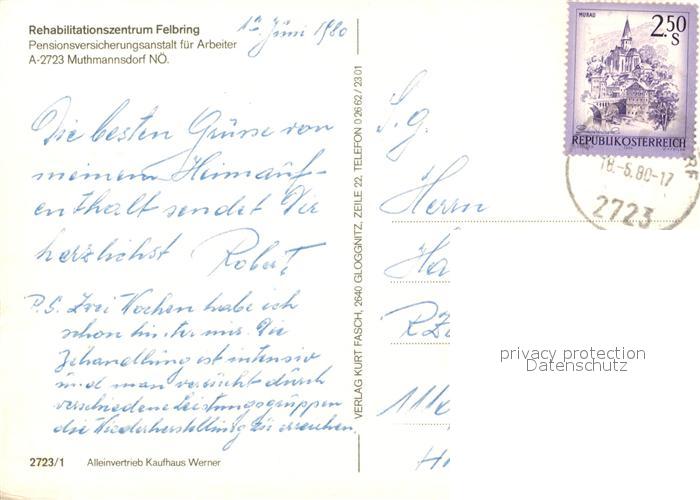 Rehabilitationszentrum Felbring
Pensionsversicherungsanstalt für Arbeiter
A-2723 Muthmannsdorf NÖ.
Juni 1980
Die besten Grüsse von
meinem Heimauf-
enthalt sendet Dir
herzlichst Robert
P.S. Zwei Wochen habe ich
schon hinter mir. Die
Behandlung ist intensiv
und man versucht durch
verschiedene Leistungsgruppen
die Wiederherstellung zu erreichen.
2723/1 Alleinvertrieb Kaufhaus Werner
VERLAG KURT FASCH, 2640 GLOGGNITZ, ZEILE 22, TELEFON 0 26 62 / 23 01
S.g.
Herrn
MURAU
2.50
S
REPUBLIK ÖSTERREICH
18.-6.80-17
2723
privacy protection
Datenschutz